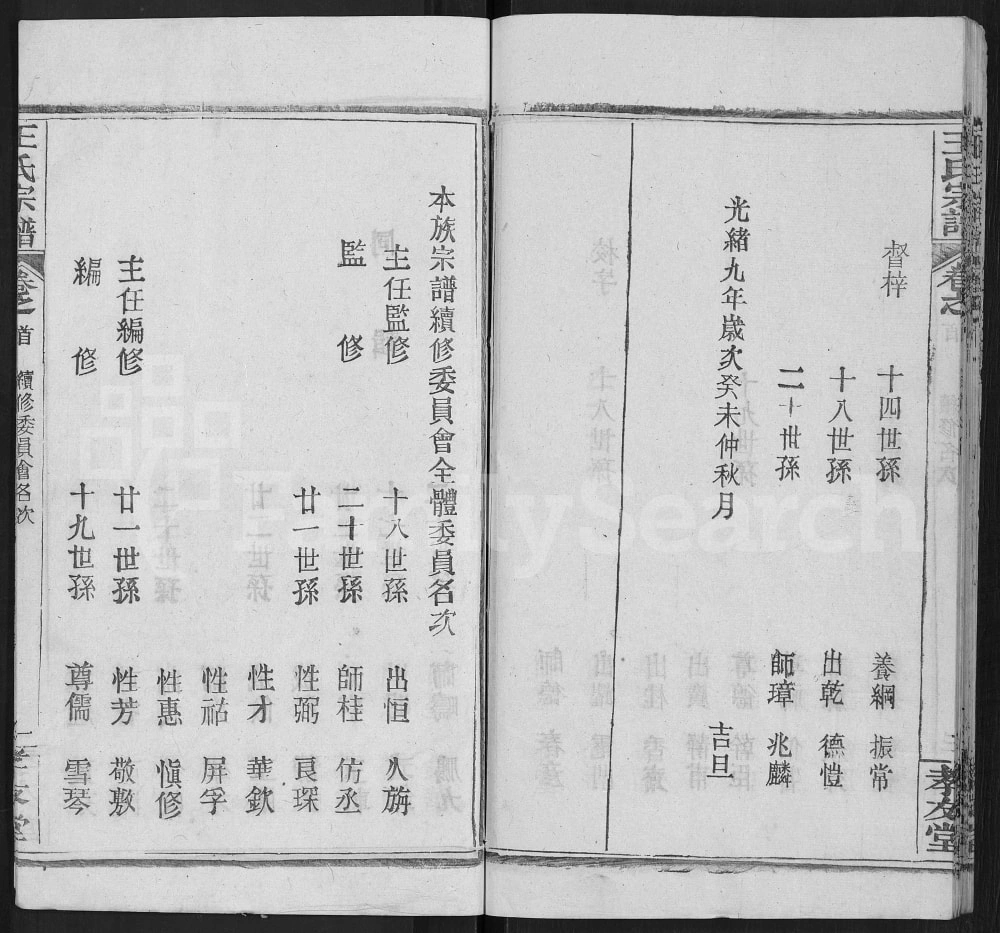 王氏宗譜
卷之
孝友堂
督梓 十四世孫 養綱 振常
十八世孫 出乾 德愷
二十世孫 師璋 兆麟
光緒九年歲次癸未仲秋月 吉旦
本族宗譜續修委員會全體委員名次
主任監修 十八世孫 出恒 人旃
監修 二十世孫 師桂 仿丞
廿一世孫 性弼 良琛
性才 華欽
性祜 屏孚
性惠 愼修
主任編修 廿一世孫 性芳 敬敷
編修 十九世孫 尊儒 雪琴
王氏宗譜
卷之首 續修委員會名次
孝友堂
FamilySearch